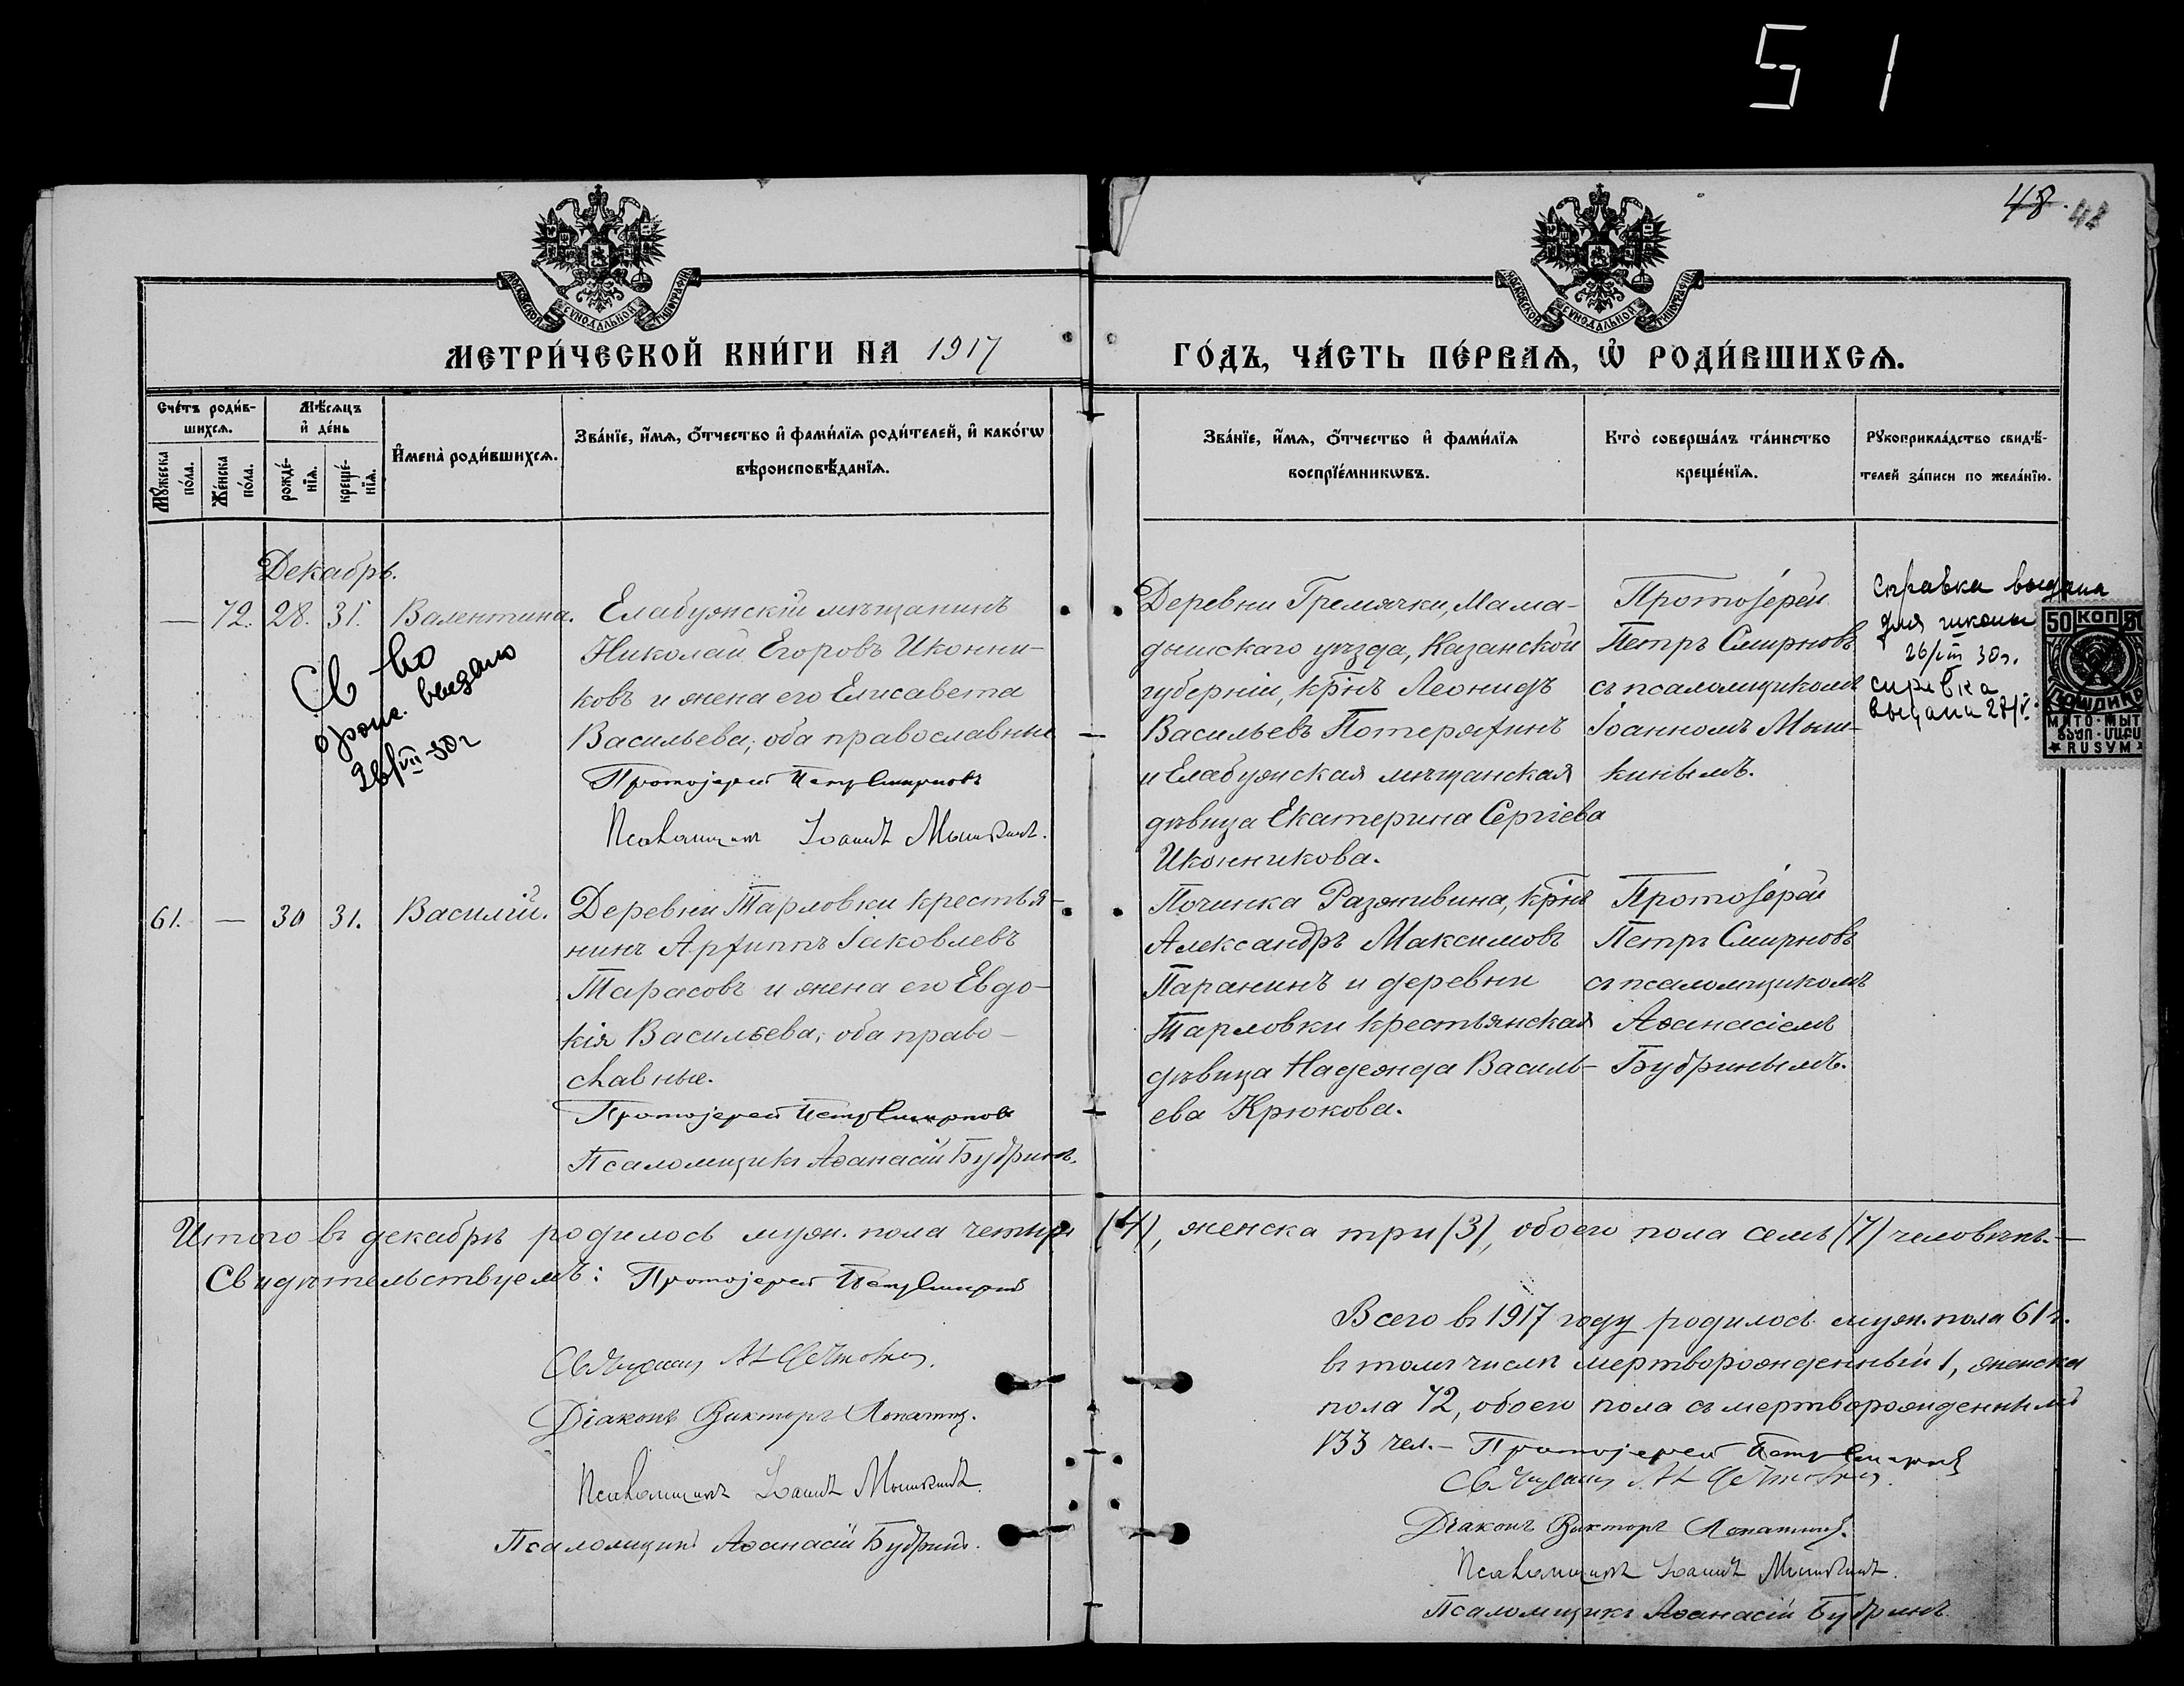 51
48. 48
МОСКОВСКОЙ СѴНОДАЛЬНОЙ ТИПОГРАФІИ
МОСКОВСКОЙ СѴНОДАЛЬНОЙ ТИПОГРАФІИ
МЕТРИ́ЧЕСКОЙ КНИ́ГИ НА 1917
ГО́ДЪ, ЧА́СТЬ ПЕ́РВАѦ, Ѡ҆ РОДИ́ВШИХСѦ.
Сче́тъ роди́в-
шихсѧ.
Мꙋ́жеска по́ла.
Же́нска по́ла.
Мѣ́сѧцъ
и҆ де́нь
рожде́-
нїѧ.
креще́-
нїѧ.
И҆мена̀ роди́вшихсѧ.
Зва́нїе, и҆́мѧ, ѻ҆́тчество и҆ фами́лїѧ роди́телей, и҆ како́гѡ
вѣроисповѣ́данїѧ.
Зва́нїе, и҆́мѧ, ѻ҆́тчество и҆ фами́лїѧ
воспрїе́мникѡвъ.
Кто̀ соверша́лъ та́инство
креще́нїѧ.
Рꙋкоприкла́дство свидѣ́-
телей за́писи по жела́нїю.
Декабрь.
— 72. 28. 31. Валентина.
Св-во
выдано
26/VII-30г
Елабужскій мѣщанинъ
Николай Егоровъ Иконни-
ковъ и жена его Елисавета
Васильева; оба православные
Протоіерей Петръ Смирновъ
Псаломщикъ Іоаннъ Мышкинъ.
Деревни Гремячки, Мама-
дышскаго уѣзда, Казанской
губерніи, кр̃нъ Леонидъ
Васильевъ Потеряхинъ
и Елабужская мѣщанская
дѣвица Екатерина Сергіева
Иконникова.
Протоіерей
Петръ Смирновъ
съ псаломщикомъ
Іоанномъ Мыш-
кинымъ.
Справка выдана
для школы
26/VIII 30г.
справка
выдана
50 КОП 50
ПОШЛИНА
МИТО·МЫТ
RUSYM
61. — 30 31. Василій.
Деревни Тарловки крестья-
нинъ Архиппъ Іаковлевъ
Тарасовъ и жена его Евдо-
кія Васильева; оба право-
славные.
Протоіерей Петръ Смирновъ
Псаломщикъ Аѳанасій Бубринъ.
Починка Разживина, кр̃нъ
Александръ Максимовъ
Паранинъ и деревни
Тарловки крестьянская
дѣвица Надежда Василь-
ева Крюкова.
Протоіерей
Петръ Смирновъ
съ псаломщикомъ
Аѳанасіемъ
Бубринымъ.
Итого въ декабрѣ родилось муж. пола четыре (4), женска три (3), обоего пола семь (7) человѣкъ.—
Свидѣтельствуемъ: Протоіерей Петръ Смирновъ
Священ.
Діаконъ Викторъ Лопатинъ.
Псаломщикъ Іоаннъ Мышкинъ.
Псаломщикъ Аѳанасій Бубринъ.
Всего въ 1917 году родилось муж. пола 61 ч.
въ томъ числѣ мертворожденный 1, женска
пола 72, обоего пола съ мертворожденнымъ
133 чел.— Протоіерей Петръ Смирновъ
Священ.
Діаконъ Викторъ Лопатинъ.
Псаломщикъ Іоаннъ Мышкинъ.
Псаломщикъ Аѳанасій Бубринъ.